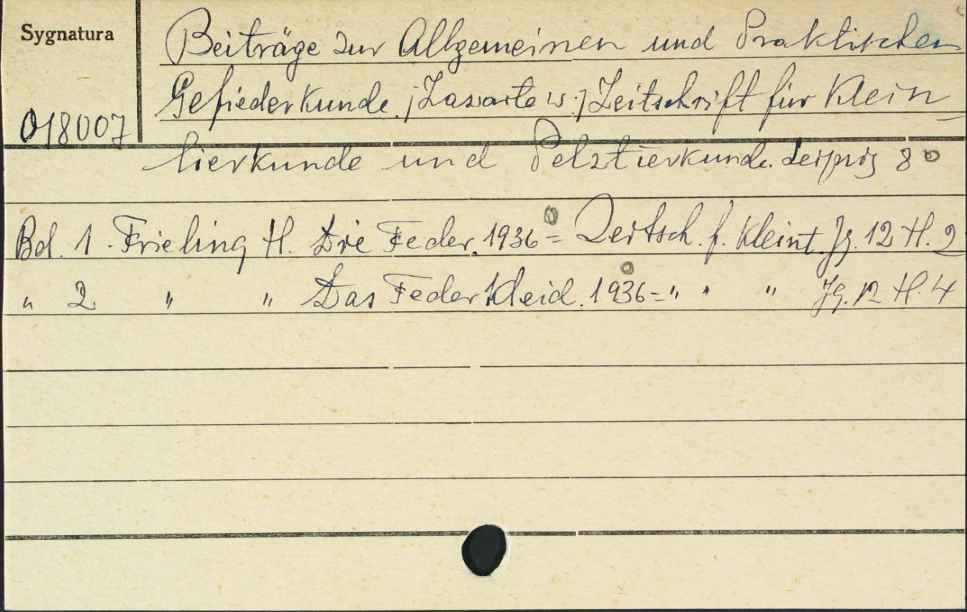 Sygnatura
018007
Beiträge zur Allgemeinen und Praktischen
Gefiederkunde. [Zawarte w:] Zeitschrift für Klein-
tierkunde und Pelztierkunde. Leipzig 8°
Bd. 1. Frieling H. Die Feder. 1936 = Zeitsch. f. Kleint. Jg. 12 H. 2
" 2 " " Das Federkleid. 1936 = " " " Jg. 12 H. 4